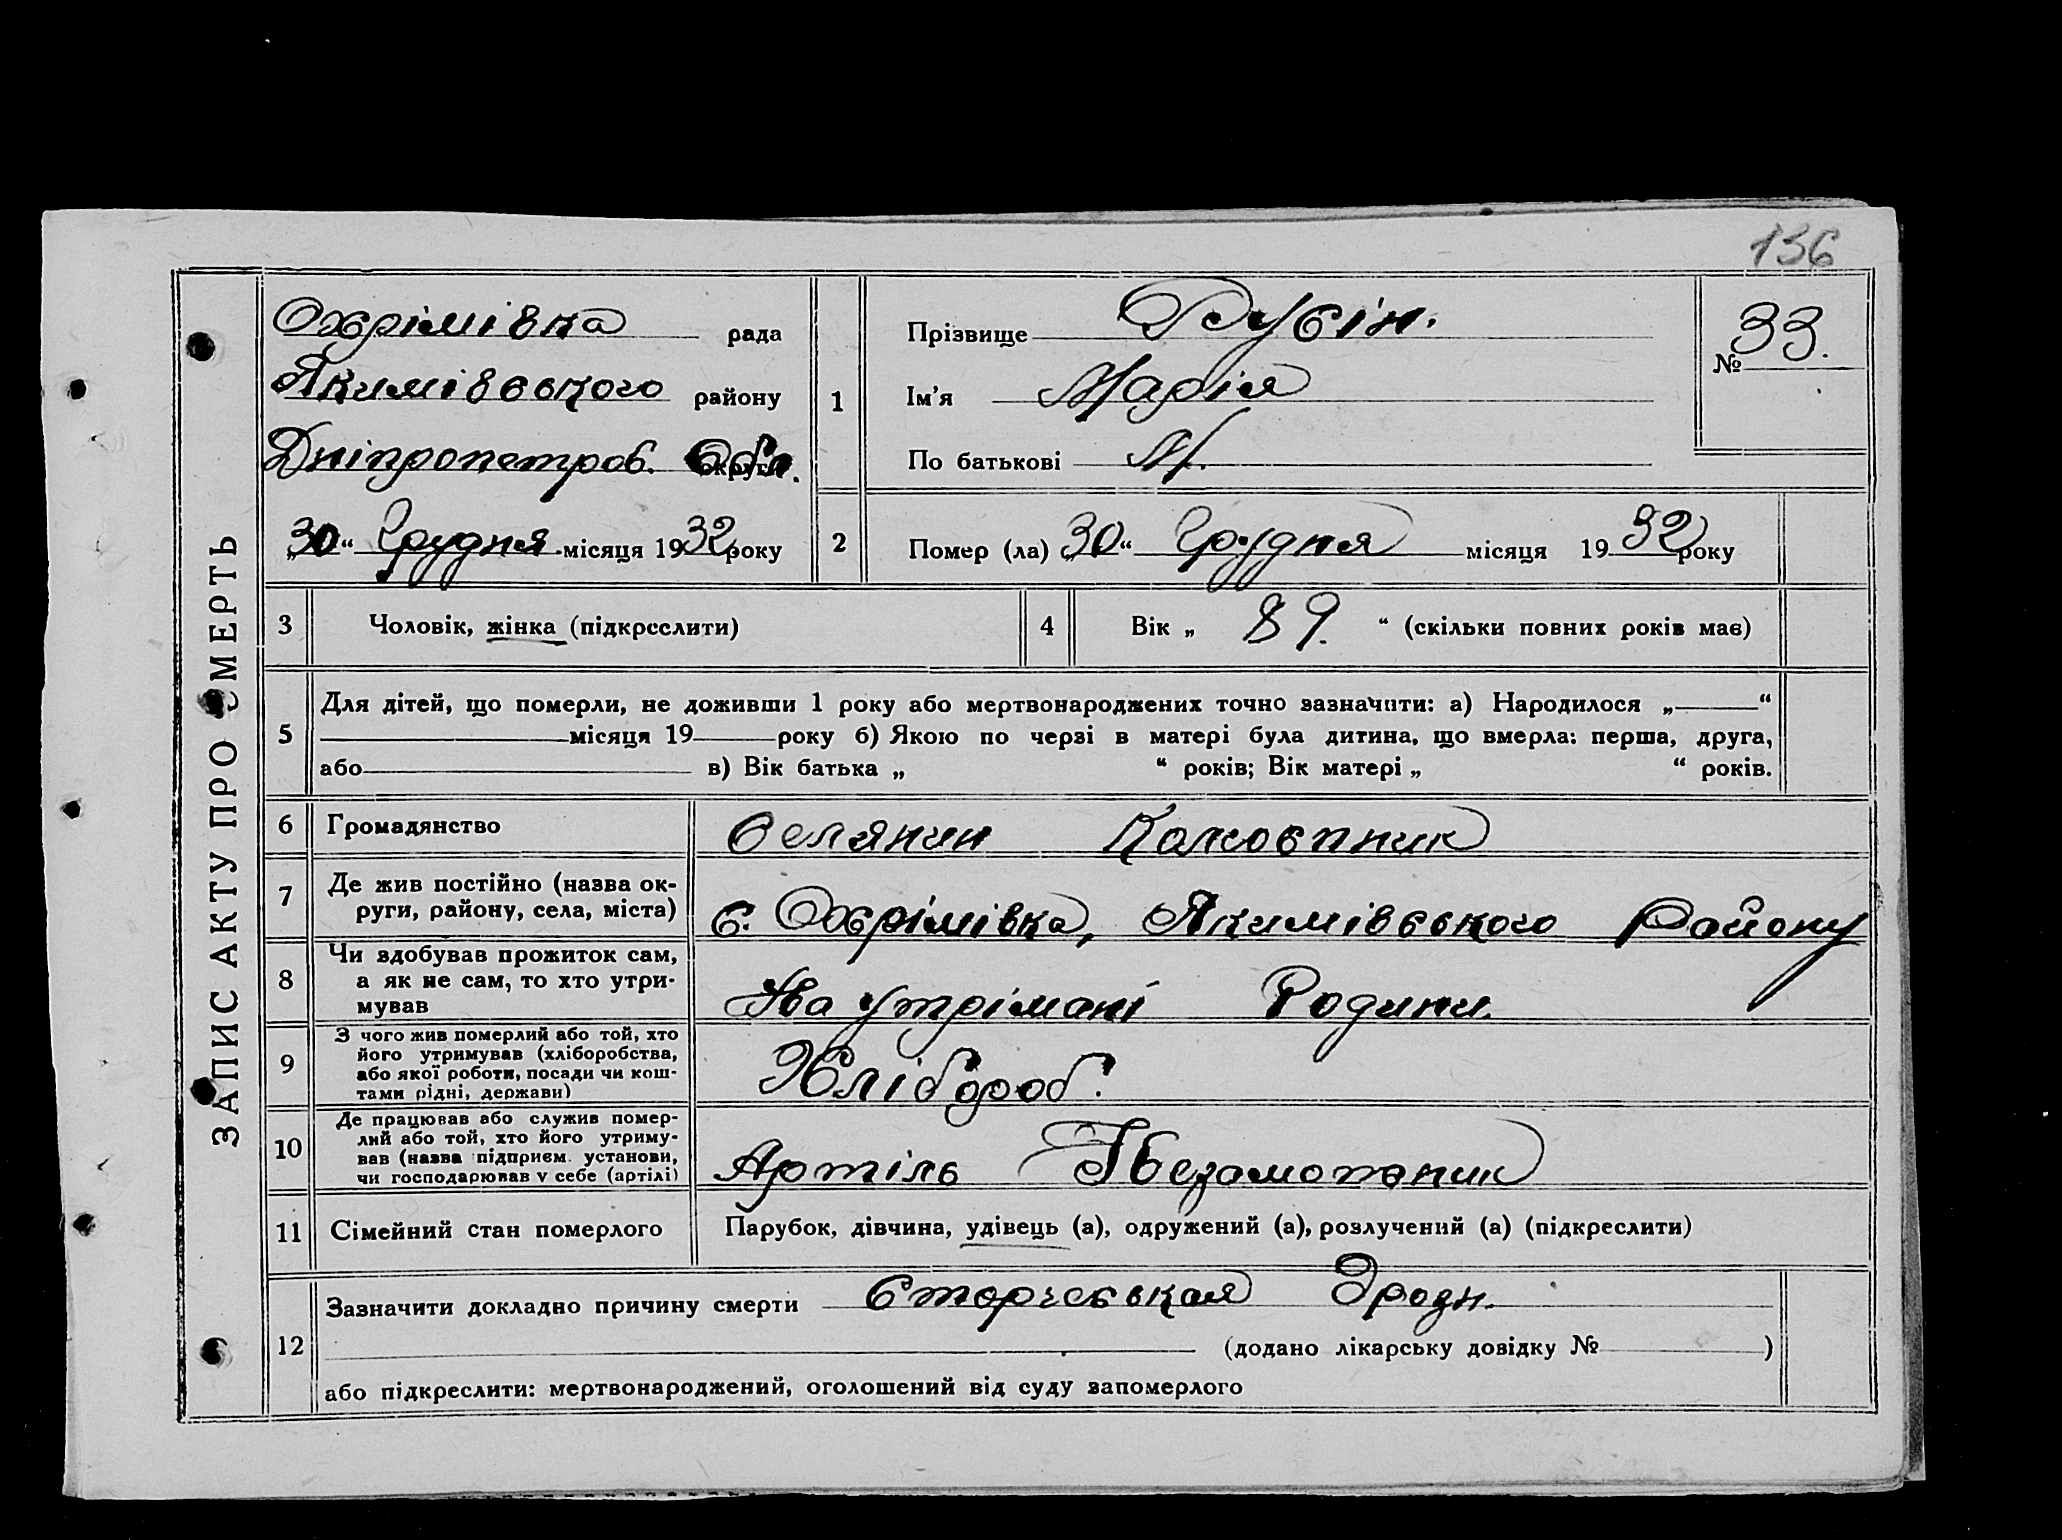 136
ЗАПИС АКТУ ПРО СМЕРТЬ
Охрімівка рада
Якимівського району
Дніпропетров. Обл.
„30“ Грудня місяця 1932 року
1
Прізвище Русін.
Ім'я Марія
По батькові М.
№ 33.
2
Помер (ла) „30“ Грудня місяця 1932 року
3 Чоловік, жінка (підкреслити)
4 Вік „ 89. “ (скільки повних років має)
5
Для дітей, що померли, не доживши 1 року або мертвонароджених точно зазначити: а) Народилося „ “
місяця 19 року б) Якою по черзі в матері була дитина, що вмерла: перша, друга,
або в) Вік батька „ “ років; Вік матері „ “ років.
6 Громадянство Селянин
7 Де жив постійно (назва ок-
руги, району, села, міста) с. Охрімівка, Якимівського Району
8 Чи здобував прожиток сам,
а як не сам, то хто утри-
мував На утрімані Родини.
9 З чого жив померлий або той, хто
його утримував (хліборобства,
або якої роботи, посади чи кош-
тами рідні, держави) Хлібороб.
10 Де працював або служив помер-
лий або той, хто його утриму-
вав (назва підприєм. установи,
чи господарював у себе (артілі) Артіль
11 Сімейний стан померлого Парубок, дівчина, удівець (а), одружений (а), розлучений (а) (підкреслити)
12
Зазначити докладно причину смерти
(додано лікарську довідку № )
або підкреслити: мертвонароджений, оголошений від суду запомерлого